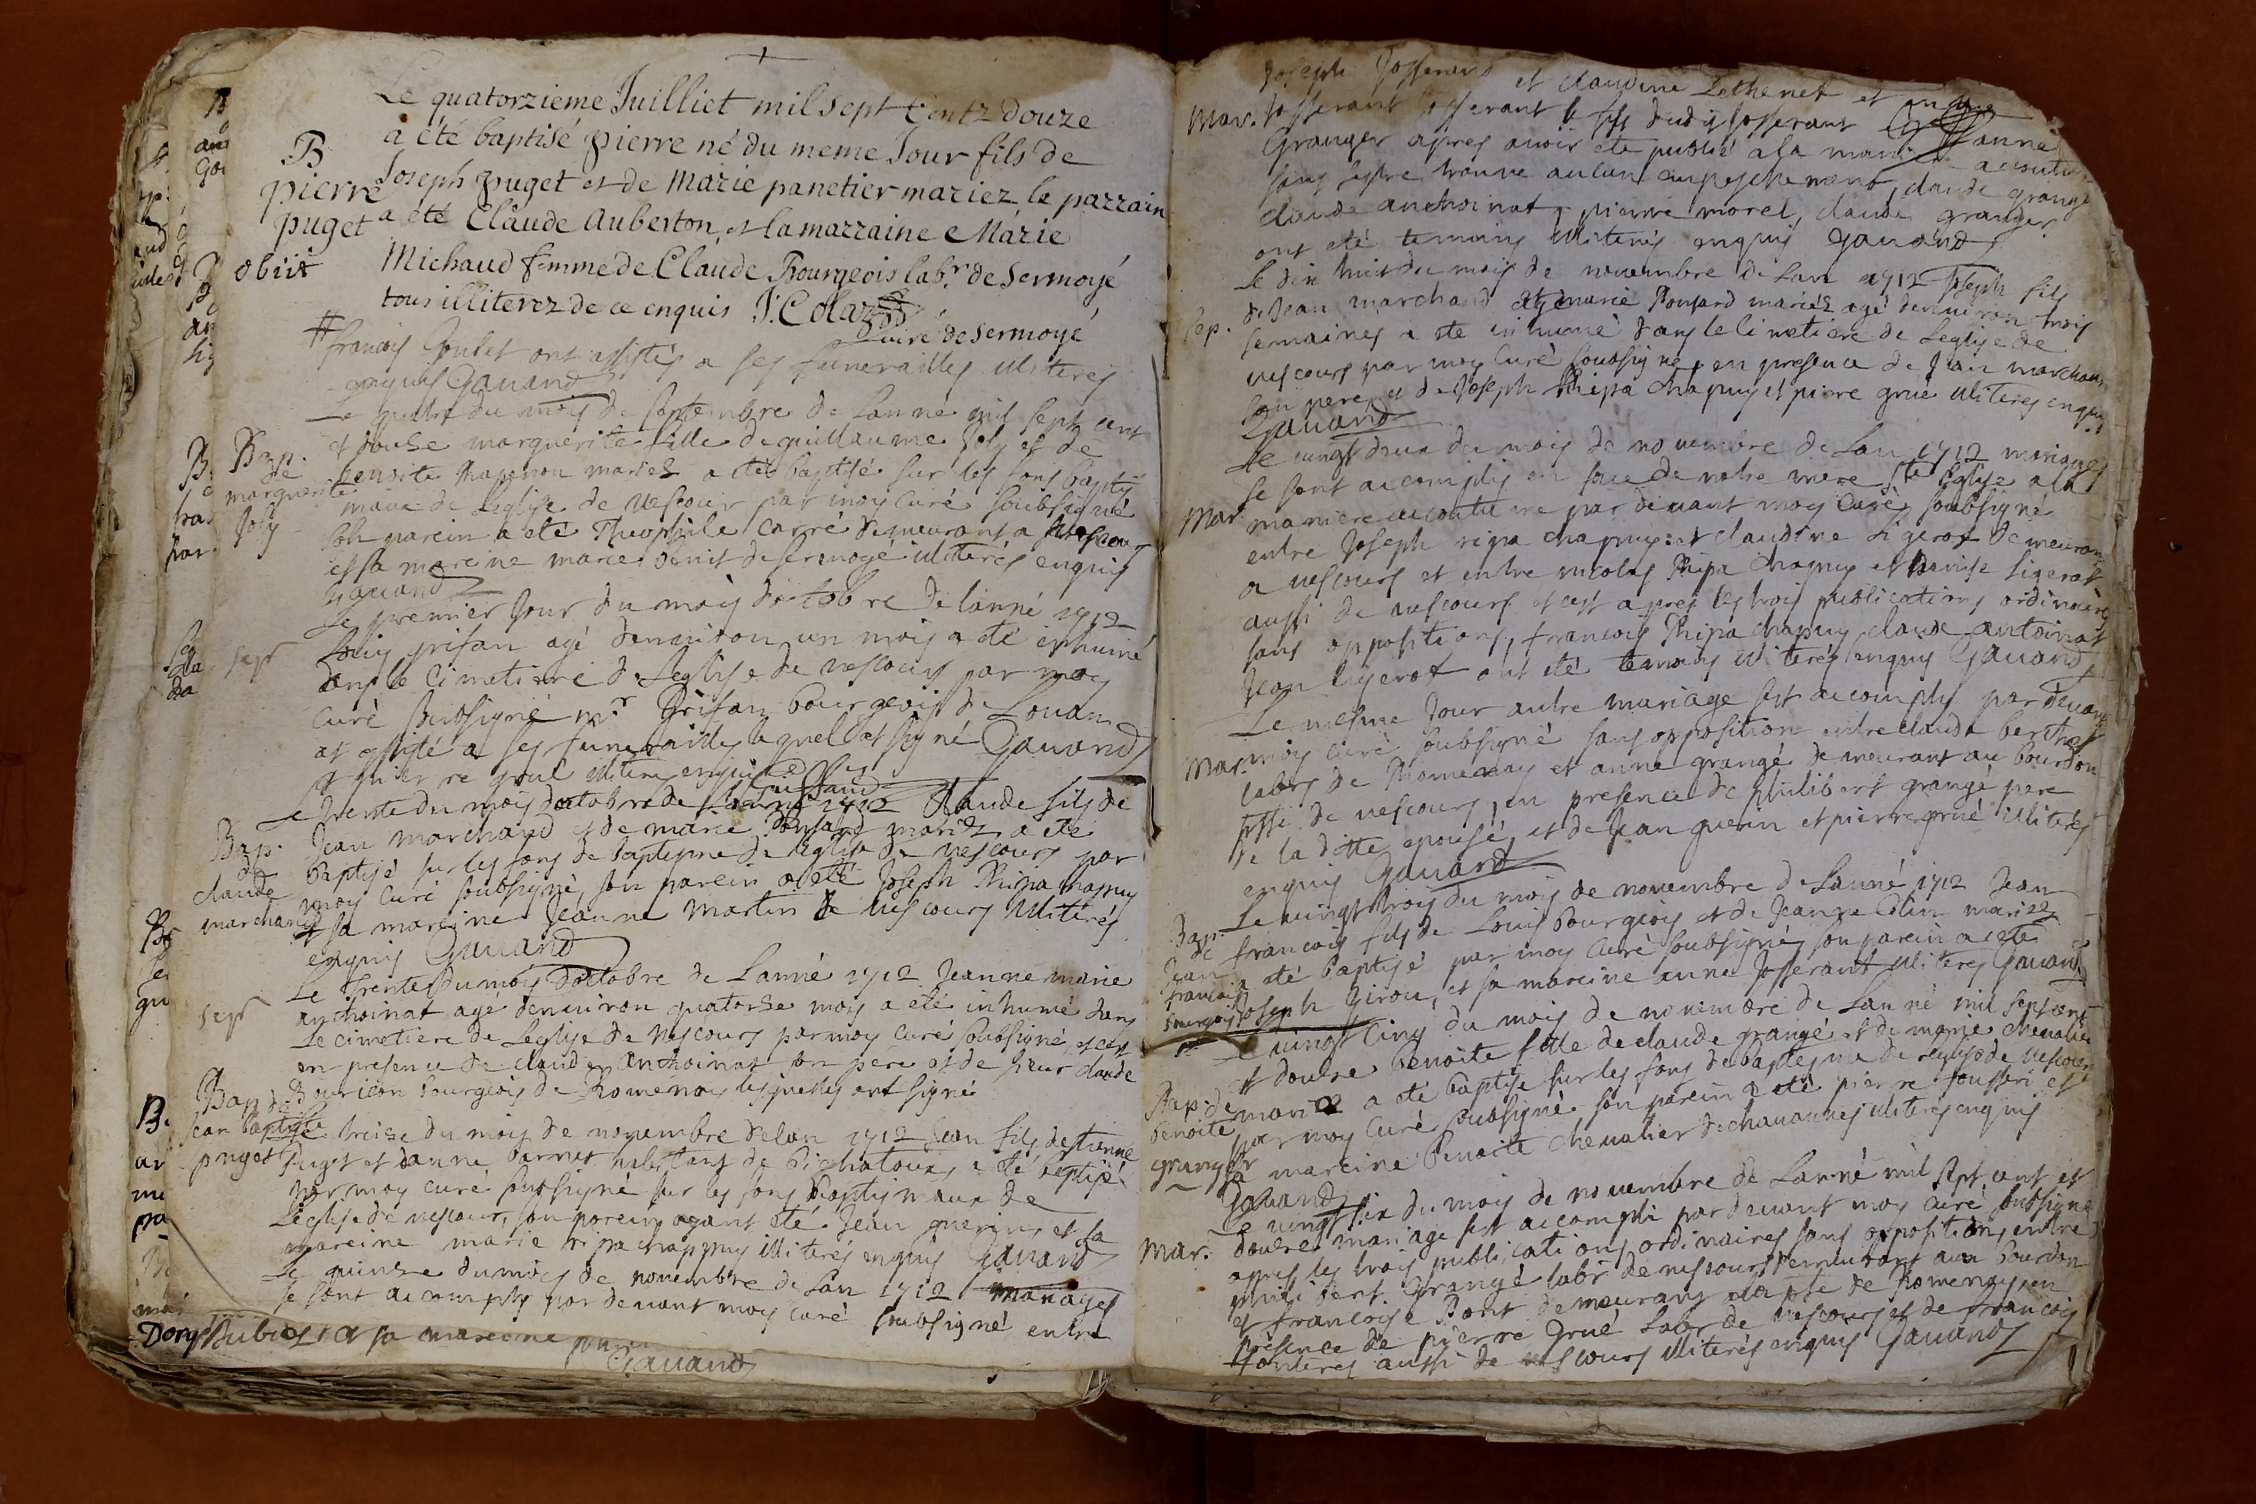 Le quatorzieme Juilliet mil sept Centz Douze
a été baptisé pierre né du meme Jour fils de
Joseph puget et de Marie panetier mariez le parrain
a été Claude Auberton, et la marraine Marie
Michaud femme de Claude Bourgeois labr. de Sermoyé
tous illiterez de ce enquis J. Colas
Curé de Sermoyé
B
pierre
puget
obiit
# francois Goulet ont assistés a ses funerailles illiterés
enquis Gauand
Le quatre du mois de septembre de Lanné mil sept cent
et douse marguerite fille de guillaume Joly et de
benoite Thapenon mariez a eté baptisé sur les fons baptis
maux de Leglise de vescour par moy Curé soubsigné
son parein a eté Theophile Carré demeurant a vescour
et sa mareine marie benit de sermoye illiterés enquis
Gauand
Bap.
de
marguerite
Joly
Le premier Jour du mois doctobre de lanné 1712
Louis grifan agé denuiron un mois a eté inhumé
dans le Cimetiere de Leglise de vescours par moy
Curé soubsigné mr. Grifan bourgeois de Louan
at assisté a ses funerailles lequel at signé Gauand
et pierre goul illiteré enquis
sepr
Le trente du mois doctobre de Lanné 1712 Claude fils de
Jean marchand et de marie Ponsard mariez a eté
baptisé sur les fons de baptesme de leglise de vescours par
moy Curé soubsigné, son parein a eté Joseph Thipa chapuy
et sa mareine Jeanne martin de vescours illiterés
enquis Gauand
Bap.
de
claude
marchand
Le trente du mois doctobre de Lanné 1712 Jeanne marie
anthoinat agé denuiron quatorse mois a eté inhumé dans
Le cimetiere de Leglise de vescours par moy curé soubsigné et cest
en presence de claude Anthoinat son pere et de sieur claude
bourgeois de Romenay lesquelles ont signé
sepr
Bap. de
Jean baptiste
puget
Le treise du mois de novembre de lan 1712 Jean fils detienne
puget et danne barnet habitans de bichatoux, a eté baptisé
par moy curé soubsigné sur les fons baptismaux de
Leglise de vescour, son parein ayant eté Jean guerin et sa
mareine marie ripa chappuy illiterés enquis Gauand
Le quinse du mois de novembre de Lan 1712 mariages
se sont acomplis par devant moy curé soubsigné entre
et sa mareine
Gauand
Joseph Josserand et claudine Lethenet et
Mar. Josserant le fils dudit Josserant et anne
Granger apres auoir eté publié a la maniere acoutu
sans sestre trouue aucun empeschement, claude grange
claude anthoinat, pierre morel, claude granger
ont eté temoins illiterés enquis Gauand
Le dix huit du mois de nouembre de Lan 1712 Joseph fils
de Jean marchand et de marie Ponsard mariéz agé denuiron trois
semaines a eté inhumé dans le cimetiere de Leglise de
vescours par moy Curé soubsigné, en presence de Jean marchan
son pere, et de Joseph Thipa chapuy et piere grué illiteres enquis
Gauand
Sep.
Le uingt deux du mois de nouembre de Lan 1712 mariages
se sont acomplis en face de notre mere ste Eglise a la
maniere acoutumé par deuant moy Curé soubsigné
entre Joseph ripa chapuy: et claudine Ligerot demeurant
a vescours et entre nicolas Ripa chapuy et Denise Ligerot
aussi de vescours et cest apres les trois publications ordinaires
sans oppositions, francois Thipa chapuy, claude antoinat
Jean Ligerot ont eté temoins illiterés enquis Gauand
Mar.
Le mesme Jour autre mariage sest acomplis par deuant
moy Curé soubsigné sans opposition entre claude berthet
labr de Romenay et anne grangé demeurant au bourdon
psse de vescours, en presence de philibert grangé pere
de la ditte epousé, et de Jean guerin et pierre grué illiterés
enquis Gauand
Mar.
Le uingt trois du mois de nouembre de Lanné 1712 Jean
francois fils de Louis bourgeois et de Jeanne Colin mariéz
a eté baptisé par moy curé soubsigné, son parein a eté
Joseph Girou, et sa mareine anne Josserant illiteres Gauand
Bap.
de
Jean
francois
bourgois
Le uingt Cinq du mois de nouembre de Lanné mil sept cent
et douse benoite fille de claude grangé et de marie cheualier
mariez a eté baptisé sur les fons de baptesme de leglise de vescours
par moy Curé soubsigné son parein a eté pierre rousseri et
sa mareine benoite cheualier de chauannes illiterés enquis
Gauand
Bap. de
benoite
granger
Le uingt six du mois de nouembre de Lanné mil sept cent et
douse mariage sest acompli par deuant moy curé soubsigné
apres les trois publications ordinaires sans opposition, entre
philibert Grangé labr de vescours demeurant au bourdon
et francoise Pont demeurant a la psse de Romenay, en
presence de pierre Grué labr de vescours et de francois
aussi de vescours illiterés enquis Gauand
Mar.